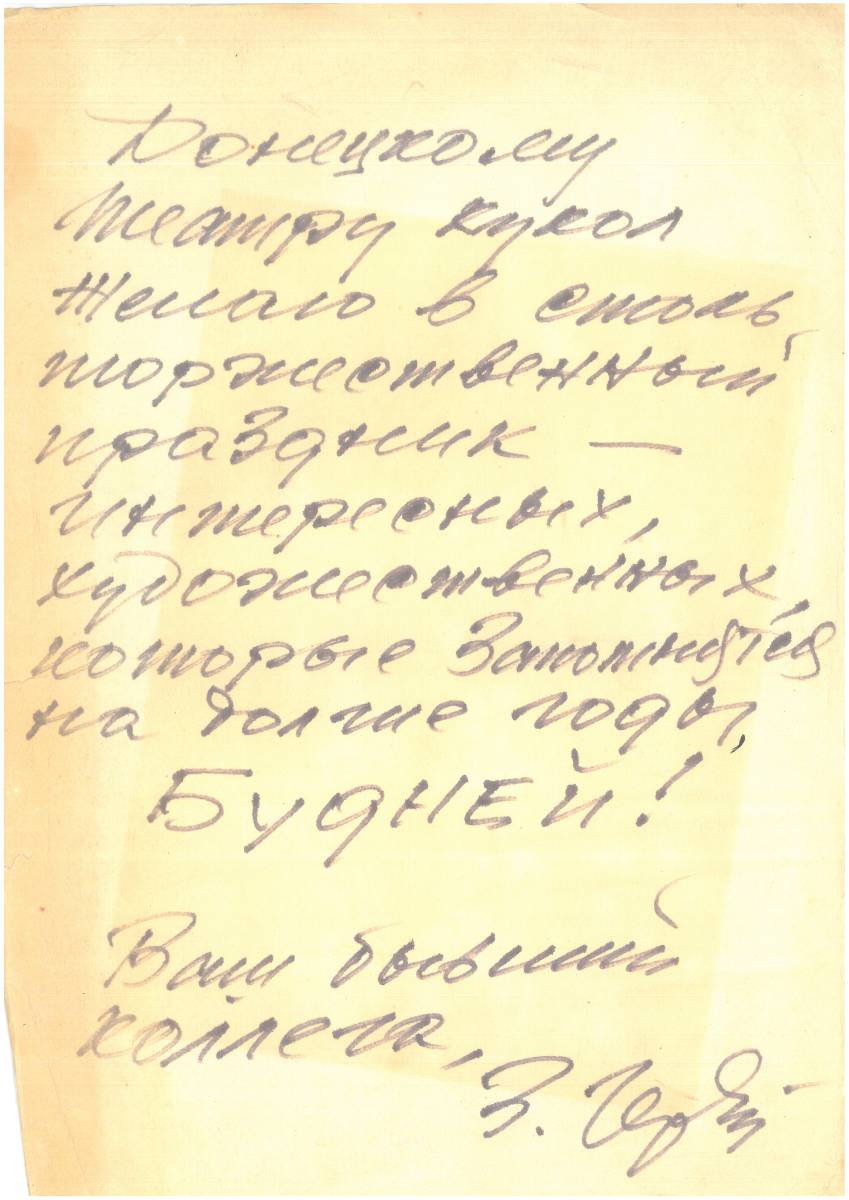 Донецкому
театру кукол
желаю в столь
торжественный
праздник —
интересных,
художественных,
которые запомнятся
на долгие годы,
БУДНЕЙ!
Ваш бывший
коллега,
З. Гердт